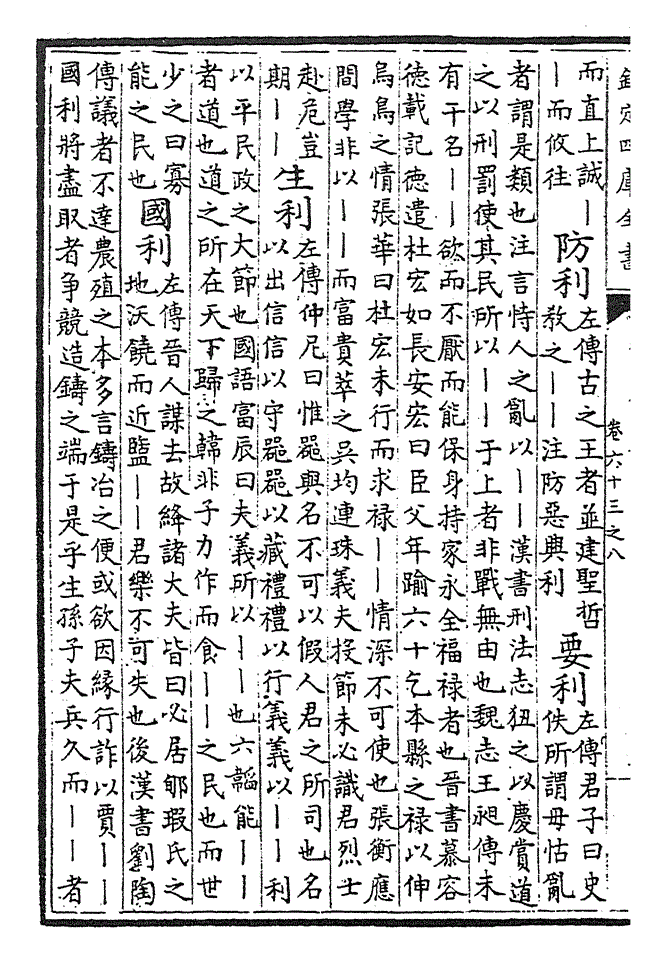 欽定四庫全書
卷六十三之八
而直上誠丨
丨而攸往
防利
左傳古之王者並建聖哲
教之丨丨注防惡興利
要利
左傳君子曰史
佚所謂毋怙亂
者謂是類也注言恃人之亂以丨丨漢書刑法志狃之以慶賞道
之以刑罰使其民所以丨丨于上者非戰無由也魏志王昶傳未
有干名丨丨欲而不厭而能保身持家永全福禄者也晉書慕容
徳載記徳遣杜宏如長安宏曰臣父年踰六十乞本縣之禄以伸
烏鳥之情張華曰杜宏未行而求禄丨丨情深不可使也張衡應
間學非以丨丨而富貴萃之吳均連珠義夫投節未必識君烈士
赴危豈
期丨丨
生利
左傳仲尼曰惟噐與名不可以假人君之所司也名
以出信信以守噐噐以藏禮禮以行義義以丨丨利
以平民政之大節也國語富辰曰夫義所以丨丨也六韜能丨丨
者道也道之所在天下歸之韓非子力作而食丨丨之民也而世
少之曰寡
能之民也
國利
左傳晉人謀去故絳諸大夫皆曰必居郇瑕氏之
地沃饒而近盬丨丨君樂不可失也後漢書劉陶
傳議者不達農殖之本多言鑄冶之便或欲因縁行詐以賈丨丨
國利將盡取者争競造鑄之端于是乎生孫子夫兵久而丨丨者